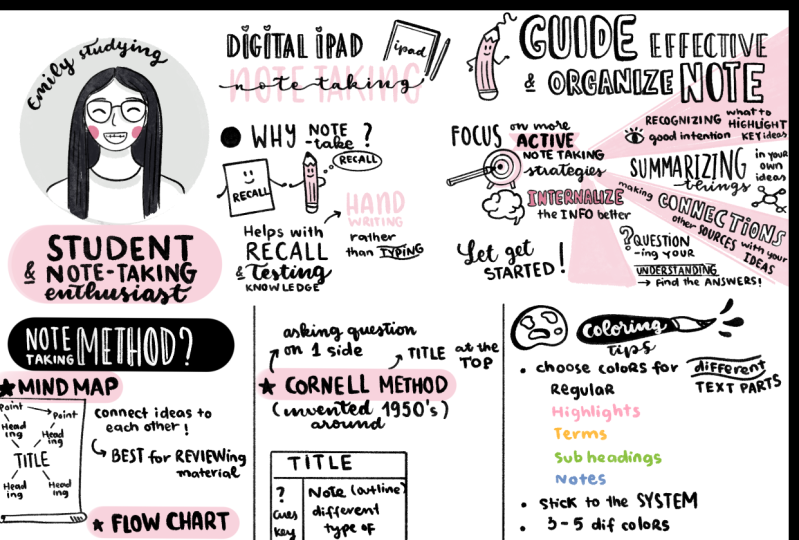 Emily studying
STUDENT
& NOTE-TAKING
enthusiast
DIGITAL IPAD
NOTE TAKING
note taking
ipad
WHY NOTE
-take ?
RECALL
RECALL
HAND
WRITING
rather
than TYPING
Helps with
RECALL
& testing
KNOWLEDGE
GUIDE EFFECTIVE
& ORGANIZE NOTE
FOCUS on more
ACTIVE
NOTE TAKING
strategies
INTERNALIZE
the INFO better
Let get
STARTED!
RECOGNIZING what to
HIGHLIGHT
good intention KEY ideas
SUMMARIZING
things
in your
own
ideas
making CONNECTIONS
other SOURCES with your
IDEAS
? QUESTION
-ing YOUR
UNDERSTANDING
→ Find the ANSWERS!
NOTE
TAKING METHOD?
★ MIND MAP
Point → Point
Head
ing
Head
ing
TITLE
Head
ing
Head
ing
connect ideas to
each other!
BEST for REVIEWing
material
★ FLOW CHART
asking question
on 1 side
TITLE at the
TOP
★ CORNELL METHOD
(invented 1950's)
around
TITLE
?
cues
key
Note (outline)
different
type of
coloring
tips
• choose colors for different
TEXT PARTS
Regular
Highlights
Terms
Sub headings
Notes
• Stick to the SYSTEM
• 3-5 dif colors